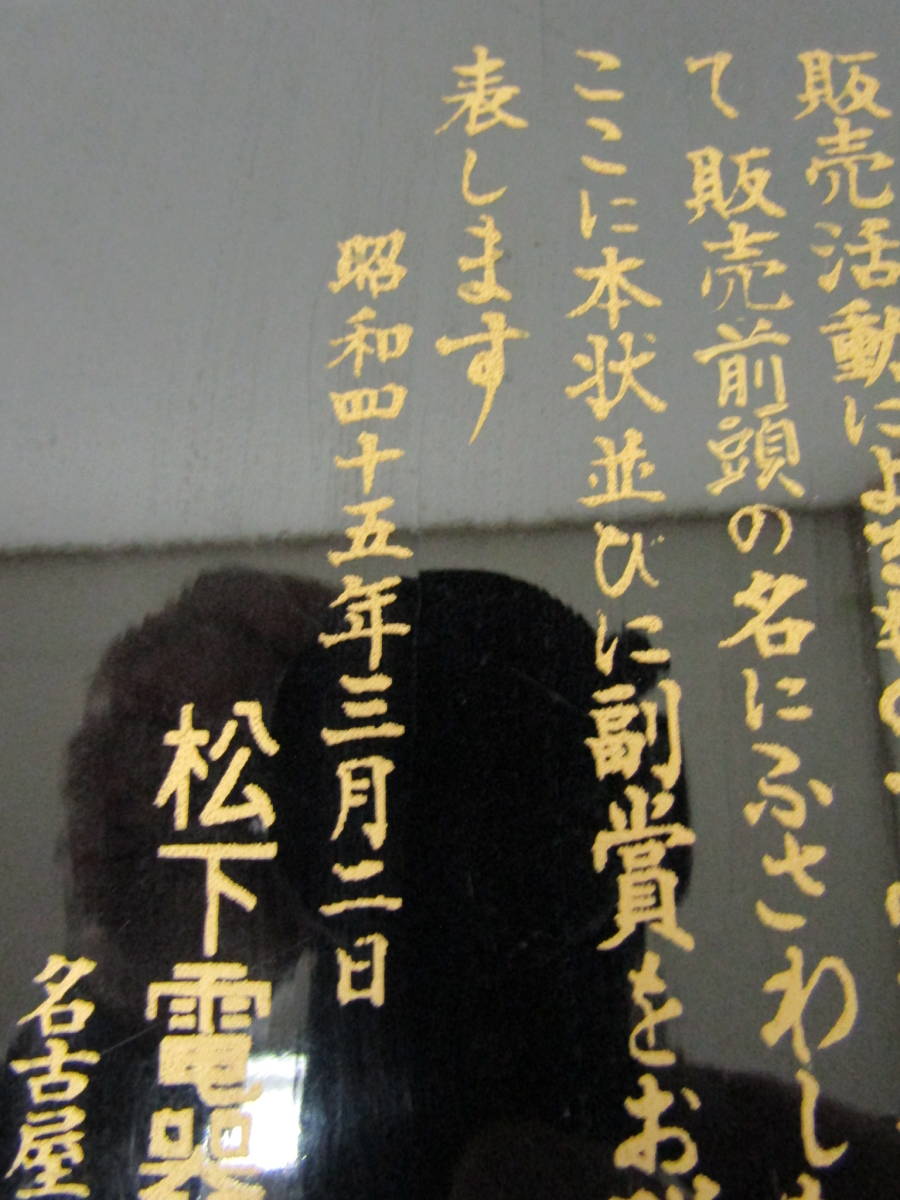 販売活動によ
て 販売前頭の名にふさわし
ここに本状並びに副賞をお
表します
昭和四十五年三月二日
松下電器
名古屋